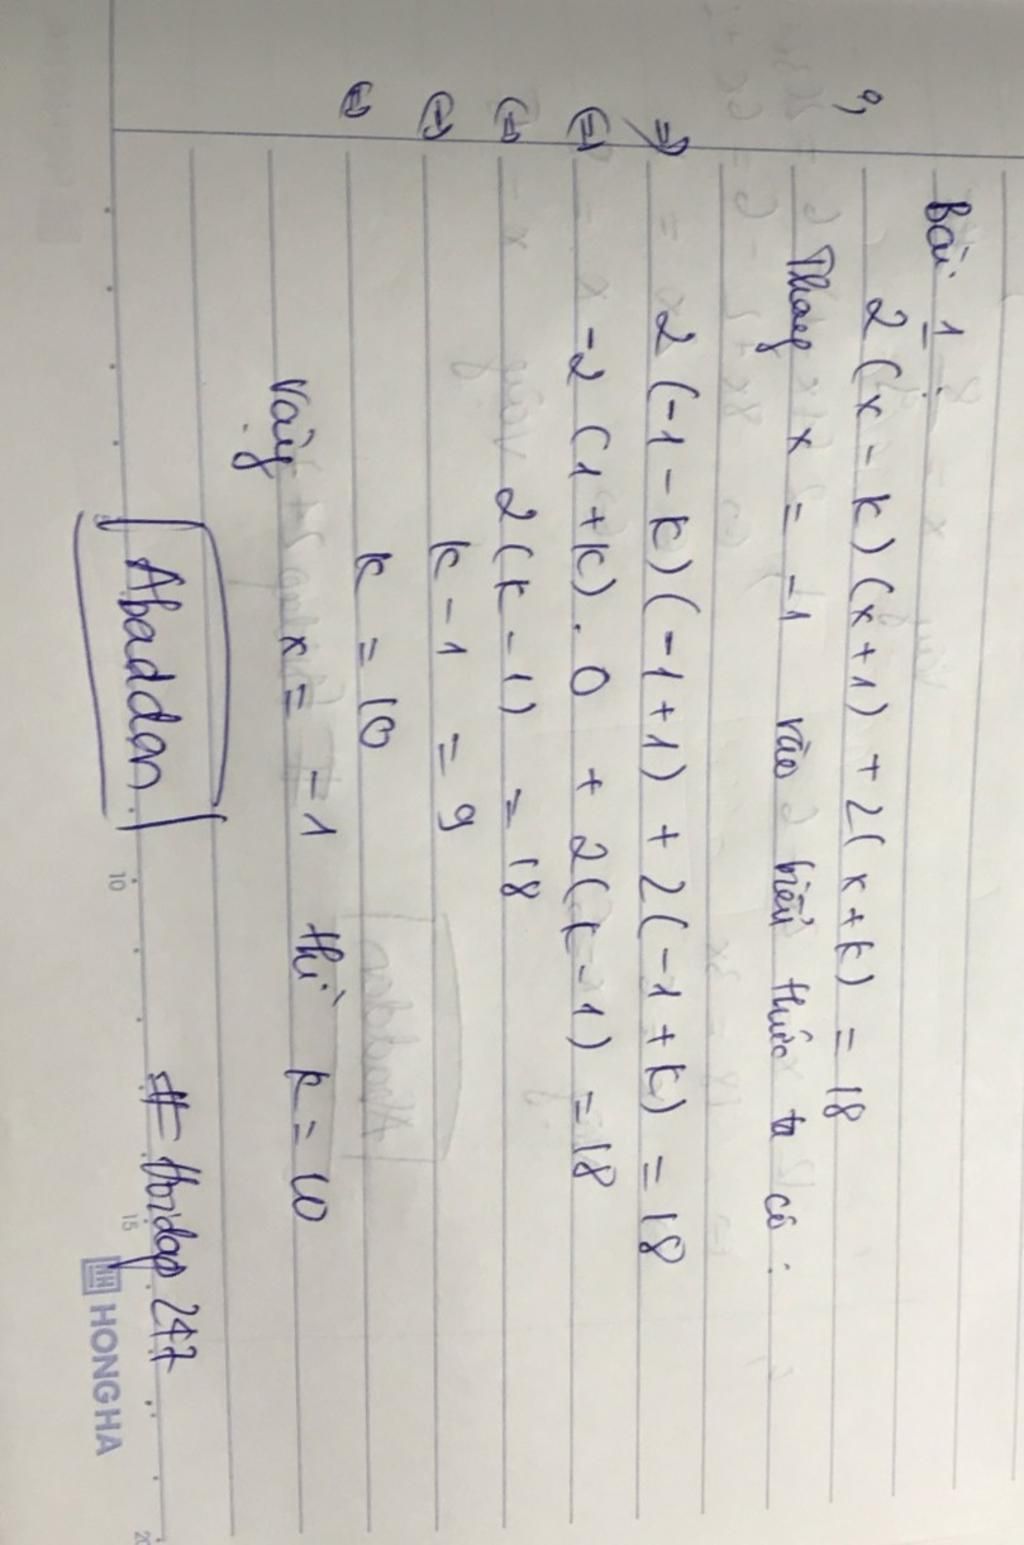 Bài 1:
a, 2(x - k)(x+1) + 2(x+k) = 18
Thay x = -1 vào biểu thức ta có:
=> 2(-1-k)(-1+1) + 2(-1+k) = 18
(=) -2(1+k).0 + 2(k-1) = 18
(=) 2(k-1) = 18
(=) k-1 = 9
(=) k = 10
Vậy x = -1 thì k = 10
Abaddan
# Hoidap 247
10
15
20
HONG HA